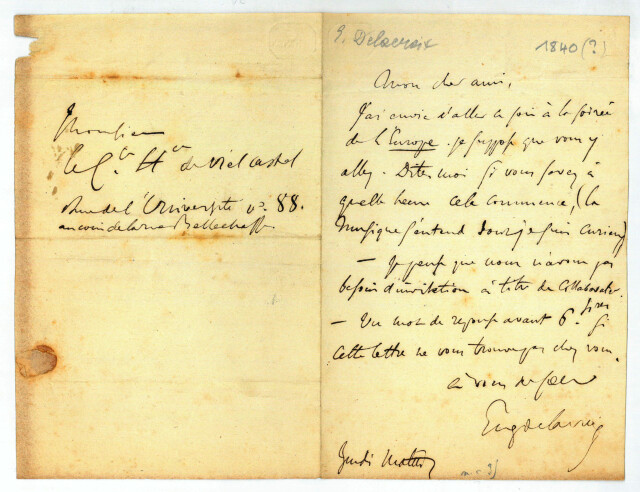 Monsieur
le Cte Hce de Viel Castel
Rue de l'Université no 88.
au coin de la rue Bellechasse
E. Delacroix
1840 (?)
Mon cher ami,
J'ai envie d'aller ce soir à la soirée
de l'Europe. je suppose que vous y
allez. Dites moi si vous savez à
quelle heure cela commence, (la
musique s'entend dont je suis curieux)
— Je pense que nous n'avons pas
besoin d'invitation à titre de Collaborateurs.
— Un mot de reponse avant 6. hres si
cette lettre ne vous trouve pas chez vous.
à vous de coeur
Eug Delacroix
Jeudi matin